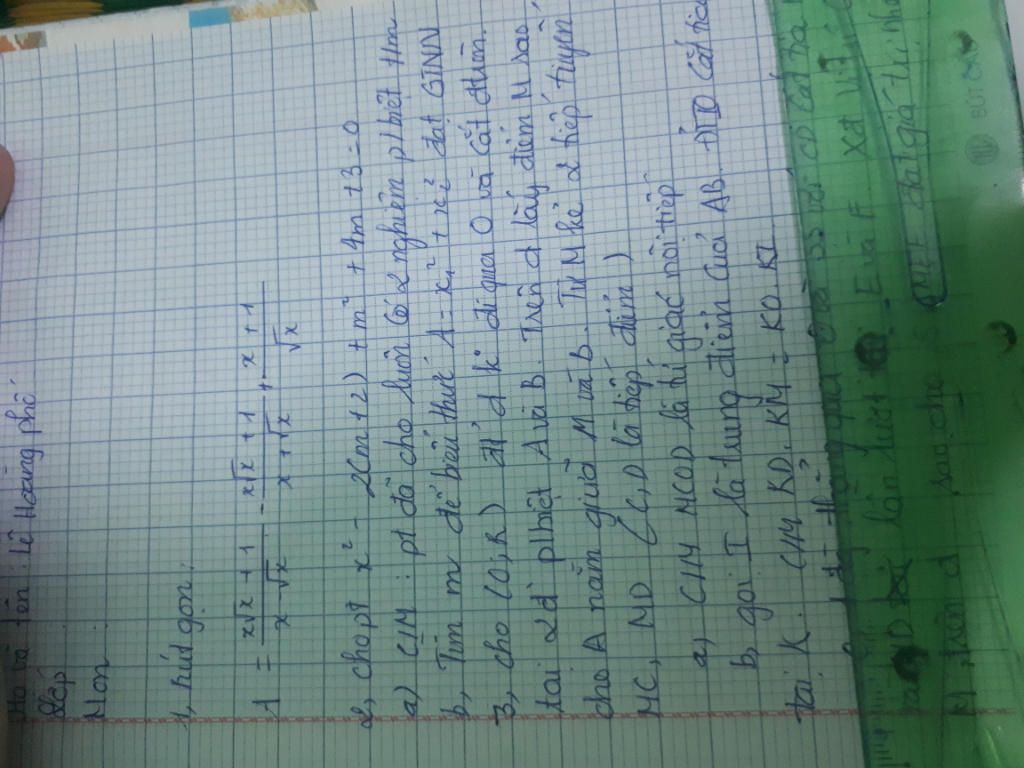 Họ và tên: Lê Hoàng phố
Lớp
Môn:
1, rút gọn:
A = \frac{x\sqrt{x} + 1}{x - \sqrt{x}} - \frac{x\sqrt{x} + 1}{x + \sqrt{x}} + \frac{x + 1}{\sqrt{x}}
2, cho pt x² - 2(m+2) + m² + 4m + 3 = 0
a) CM: pt đã cho luôn có 2 nghiệm p/biệt
b, Tìm m để biểu thức A = x₁² + x₂² đạt GTNN
3, cho (O;R) đt d k° đi qua O và cắt đtròn
tại 2 đ' p/biệt A và B. Trên d lấy điểm M sao
cho A nằm giữa M và B. Từ M kẻ 2 tiếp tuyến
MC, MD (C,D là tiếp điểm)
a, CM MCOD là tứ giác nội tiếp
b, gọi I là trung điểm của AB. cắt
tại K. CM KD.KM = KO.KI
E và F
lần lượt
BÚT